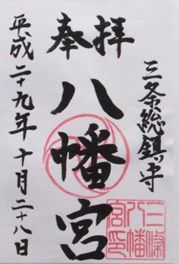 三条総鎮守
奉拝
八幡宮
平成二十九年十月二十八日
三條
八幡
宮印